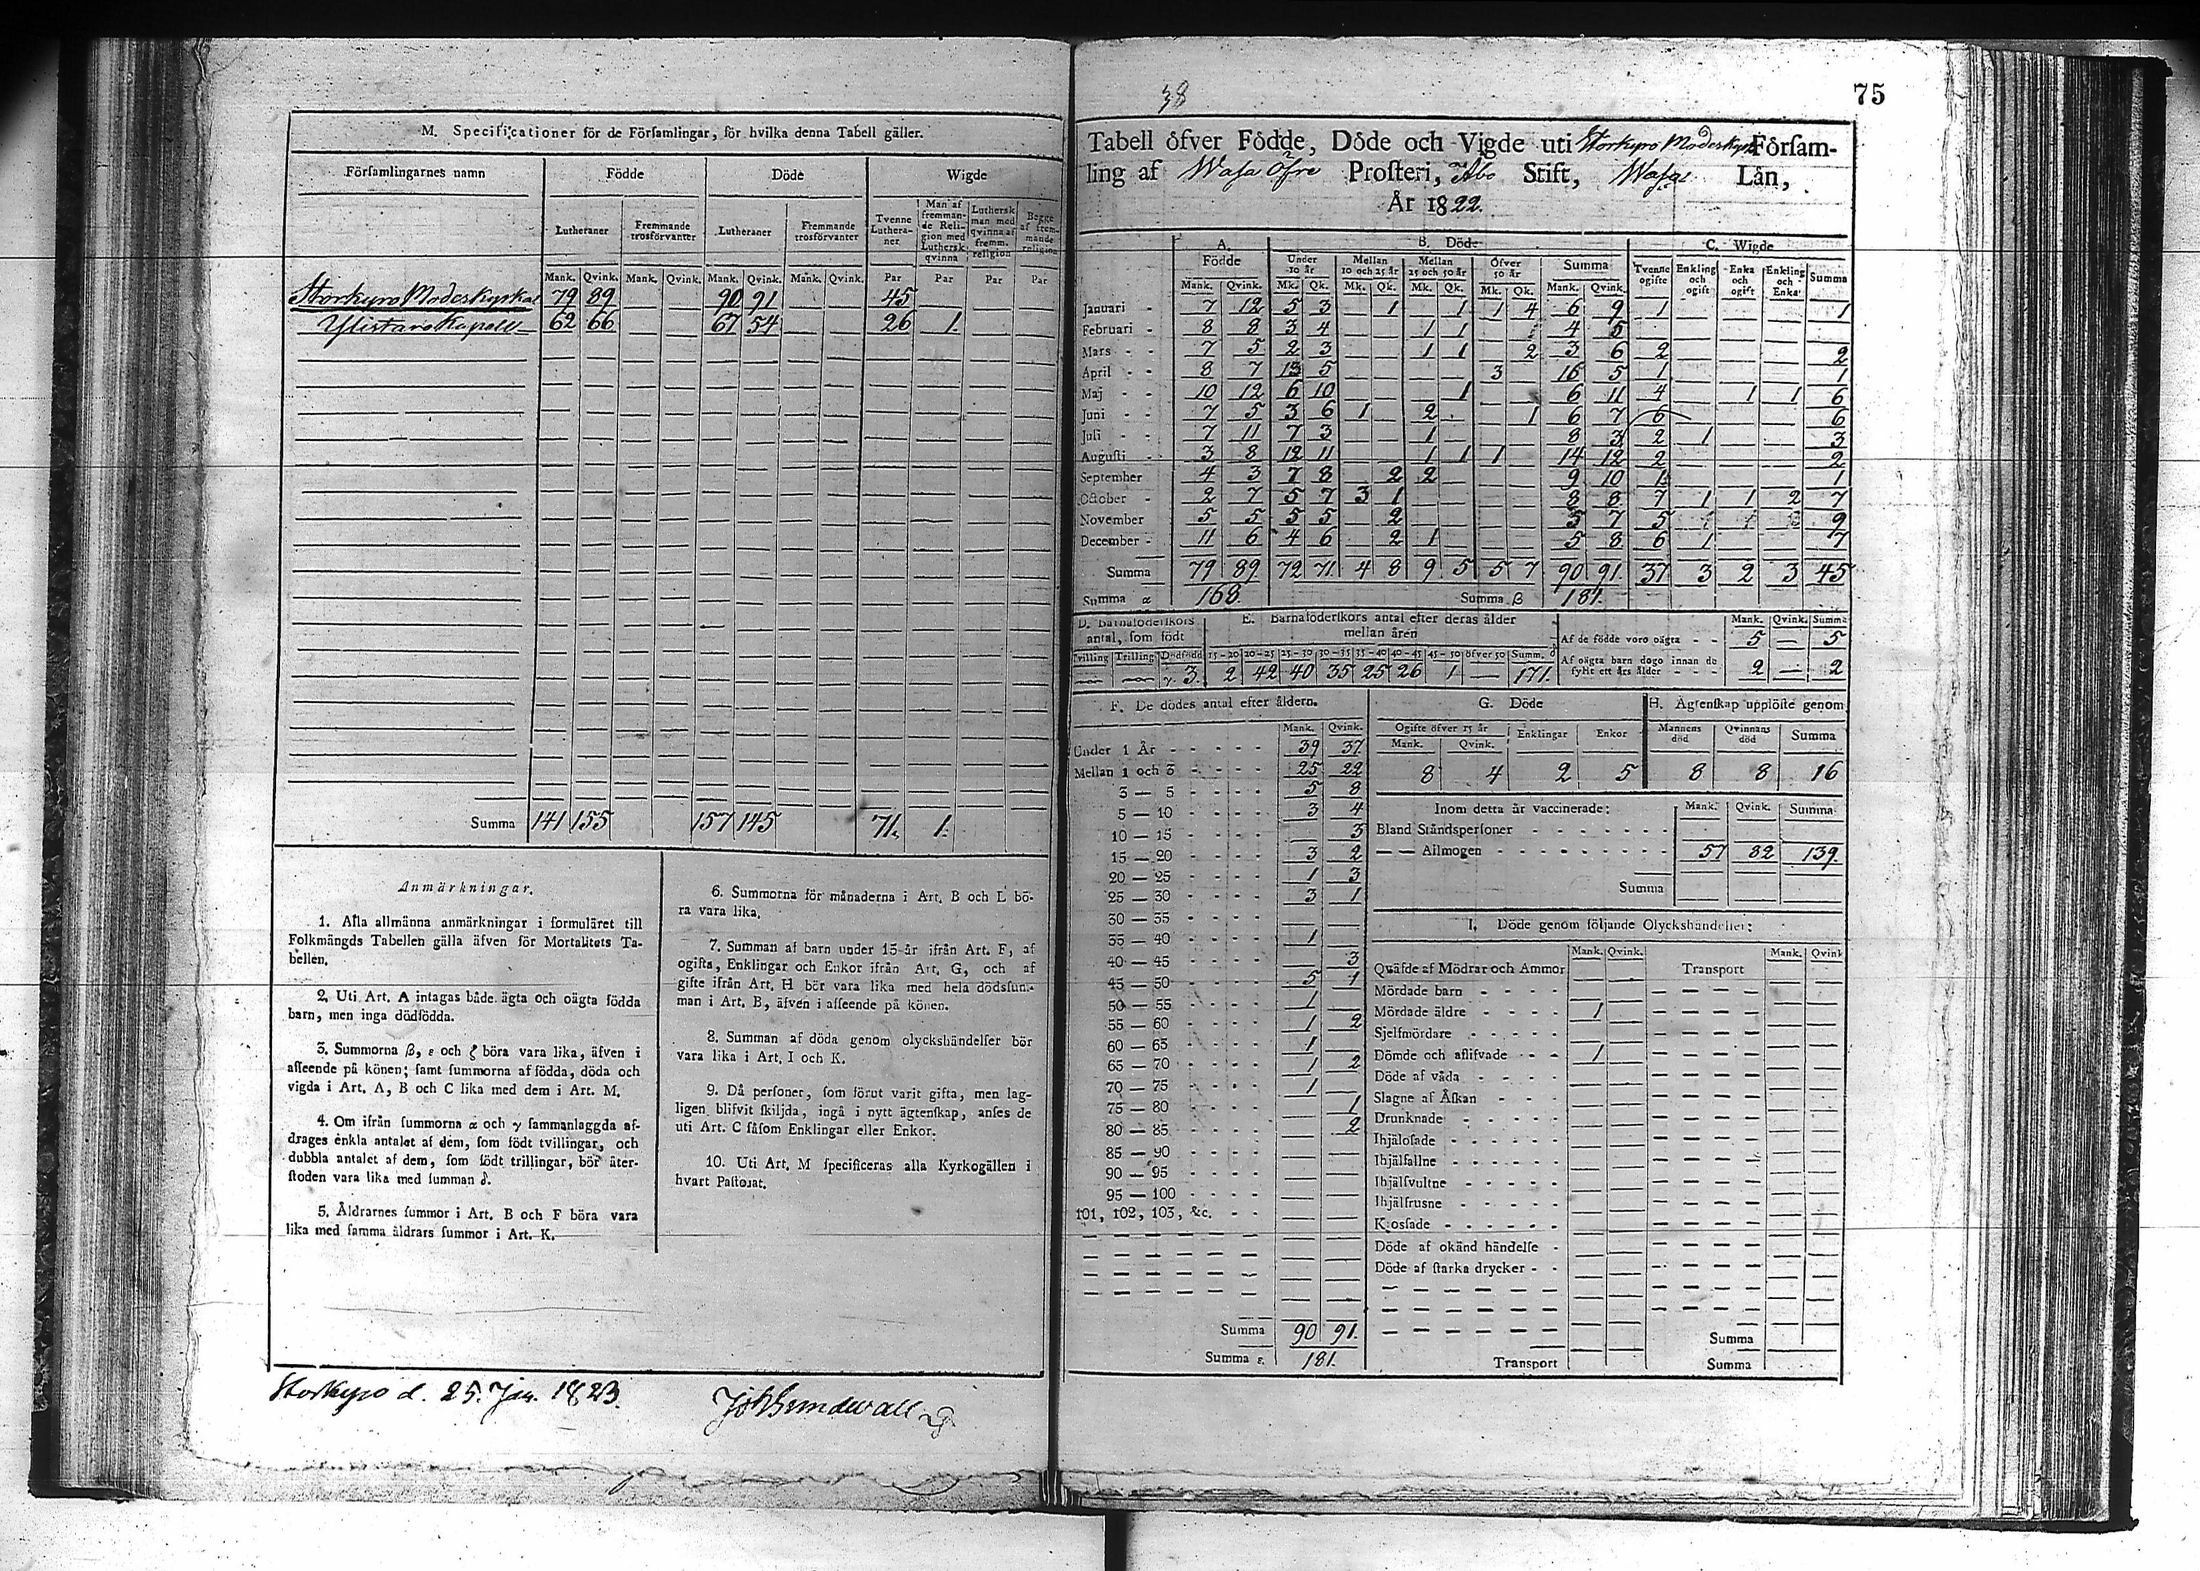 M. Specificationer för de Församlingar, för hvilka denna Tabell gäller.
Församlingarnes namn Födde Döde Wigde
Lutheraner Fremmande trosförvanter Lutheraner Fremmande trosförvanter Tvenne Lutheraner Man af fremmande Religion med Luthersk qvinna Luthersk man med qvinna af fremm. religion Begge af fremmande religion
Mank. Qvink. Mank. Qvink. Mank. Qvink. Mank. Qvink. Par Par Par Par
Storkyro Moderkyrka 79 89 90 91 45
Ylistaro Kapell 62 66 67 54 26 1.
Summa 141 155 157 145 71. 1.
Anmärkningar.
1. Alla allmänna anmärkningar i formuläret till
Folkmängds Tabellen gälla äfven för Mortalitets Ta-
bellen.
2. Uti Art. A intagas både ägta och oägta födda
barn, men inga dödfödda.
3. Summorna β, ε och ζ böra vara lika, äfven i
afseende på könen; samt summorna af födda, döda och
vigda i Art. A, B och C lika med dem i Art. M.
4. Om ifrån summorna α och γ sammanlaggda af-
drages enkla antalet af dem, som födt tvillingar, och
dubbla antalet af dem, som födt trillingar, bör åter-
stoden vara lika med summan δ.
5. Åldrarnes summor i Art. B och F böra vara
lika med samma åldrars summor i Art. K.
6. Summorna för månaderna i Art. B och L bö-
ra vara lika.
7. Summan af barn under 15 år ifrån Art. F, af
ogifta, Enklingar och Enkor ifrån Art. G, och af
gifte ifrån Art. H bör vara lika med hela dödssum-
man i Art. B, äfven i afseende på könen.
8. Summan af döda genom olyckshändelser bör
vara lika i Art. I och K.
9. Då personer, som förut varit gifta, men lag-
ligen blifvit skiljda, ingå i nytt ägtenskap, anses de
uti Art. C såsom Enklingar eller Enkor.
10. Uti Art. M specificeras alla Kyrkogällen i
hvart Pastorat.
Storkyro d. 25. Jan. 1823.
38
75
Tabell öfver Födde, Döde och Vigde uti Storkyro Moderkyrk Församling
af Wasa Öfre Prosteri, Åbo Stift, Wasa Län,
År 1822.
A. Födde B. Döde C. Wigde
Under 10 år Mellan 10 och 25 år Mellan 25 och 50 år Öfver 50 år Summa Tvenne ogifte Enkling och ogift Enka och ogift Enkling och Enka Summa
Mank. Qvink. Mk. Qk. Mk. Qk. Mk. Qk. Mk. Qk. Mank. Qvink.
Januari 7 12 5 3 1 1 1 4 6 9 1 1
Februari 8 8 3 4 1 1 4 5
Mars 7 5 2 3 1 1 2 3 6 2 2
April 8 7 13 5 3 16 5 1 1
Maj 10 12 6 10 1 6 11 4 1 1 6
Juni 7 5 3 6 1 2 1 6 7 6 6
Juli 7 11 7 3 1 8 3 2 1 3
Augusti 3 8 12 11 1 1 1 14 12 2 2
September 4 3 7 8 2 2 9 10 1 1
October 2 7 5 7 3 1 8 8 7 1 1 2 7
November 5 5 5 5 2 5 7 5 9
December 11 6 4 6 2 1 5 8 6 1 7
Summa 79 89 72 71. 4 8 9 5 5 7 90 91. 37 3 2 3 45
Summa α 168. Summa β 181.
D. Barnaföderskors antal, som födt
Tvilling Trilling Dödfödd
γ. 3.
E. Barnaföderskors antal efter deras ålder mellan åren
15-20 20-25 25-30 30-35 35-40 40-45 45-50 öfver 50 Summ. δ
2 42 40 35 25 26 1 — 171.
Mank. Qvink. Summa
Af de födde voro oägta 5 — 5
Af oägta barn dogo innan de fyllt ett års ålder 2 — 2
F. De dödes antal efter åldern.
Mank. Qvink.
Under 1 År 39 37
Mellan 1 och 3 25 22
3 — 5 5 8
5 — 10 3 4
10 — 15 3
15 — 20 3 2
20 — 25 1 3
25 — 30 3 1
30 — 35
35 — 40 1
40 — 45 3
45 — 50 5 1
50 — 55 1
55 — 60 1 2
60 — 65 1
65 — 70 1 2
70 — 75 1
75 — 80 1
80 — 85 2
85 — 90
90 — 95
95 — 100
101, 102, 103, &c.
Summa 90 91.
Summa ε. 181.
G. Döde
Ogifte öfver 15 år Enklingar Enkor
Mank. Qvink.
8 4 2 5
H. Ägtenskap upplöste genom
Mannens död Qvinnans död Summa
8 8 16
Inom detta år vaccinerade: Mank. Qvink. Summa
Bland Ståndspersoner
— — Allmogen 57 82 139.
Summa
I. Döde genom följande Olyckshändelser:
Mank. Qvink. Mank. Qvink
Qväfde af Mödrar och Ammor Transport
Mördade barn
Mördade äldre 1
Sjelfmördare
Dömde och aflifvade 1
Döde af våda
Slagne af Åskan
Drunknade
Ihjälofade
Ihjälfallne
Ihjälsvultne
Ihjälfrusne
Krossade
Döde af okänd händelse
Döde af starka drycker
Summa
Transport Summa